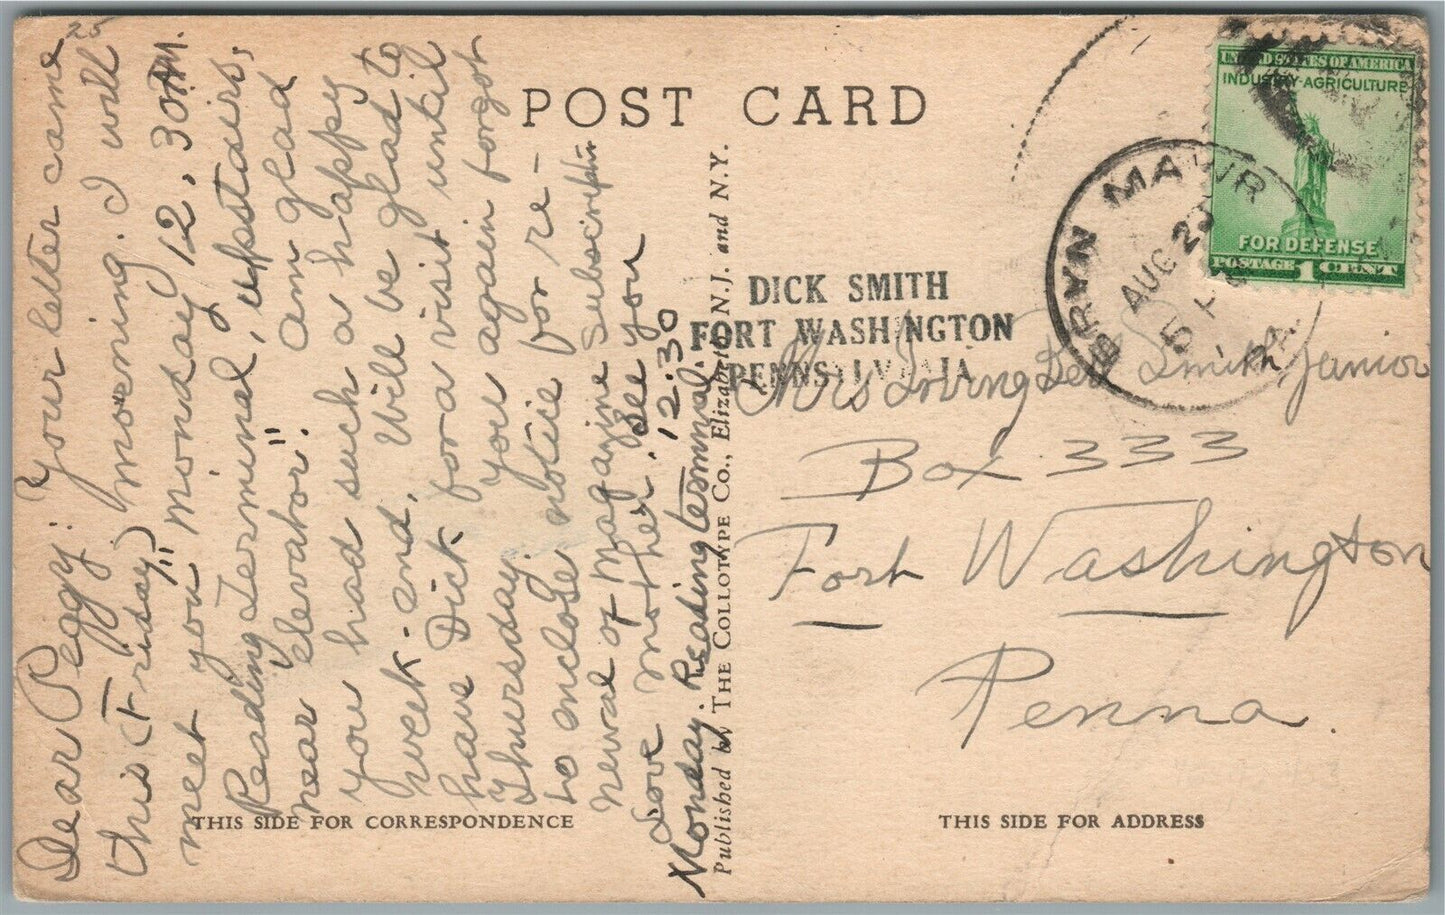 25
Dear Peggy: Your letter came
this (Friday) morning. I will
meet you "Monday 12, 30 AM.
Reading Terminal, upstairs,
near Elevator". Am glad
you had such a happy
week-end. Will be glad to
have Dick for a visit until
Thursday. You again forgot
to enclose notice for re-
newal of Magazine Subscription
Love Mother. See you
Monday. Reading Terminal. 12.30
THIS SIDE FOR CORRESPONDENCE
Published by THE COLLOTYPE CO., Elizabeth, N.J. and N.Y.
POST CARD
UNITED STATES OF AMERICA
INDUSTRY-AGRICULTURE
FOR DEFENSE
POSTAGE 1 CENT
BRYN MAWR
AUG 29
5 P
PA.
DICK SMITH
FORT WASHINGTON
PENNSYLVANIA
Mrs Irving Smith Junior
Box 333
Fort Washington
Penna.
THIS SIDE FOR ADDRESS